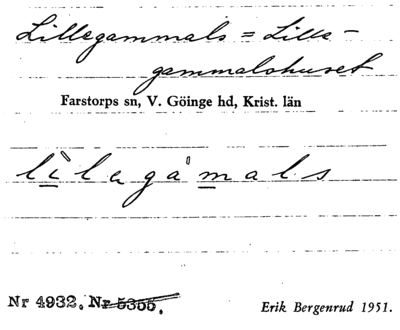 Lillegammals = Lilla-
gammalshuset
Farstorps sn, V. Göinge hd, Krist. län
lìlagåmals
Nr 4932. Nr 5355.
Erik Bergenrud 1951.